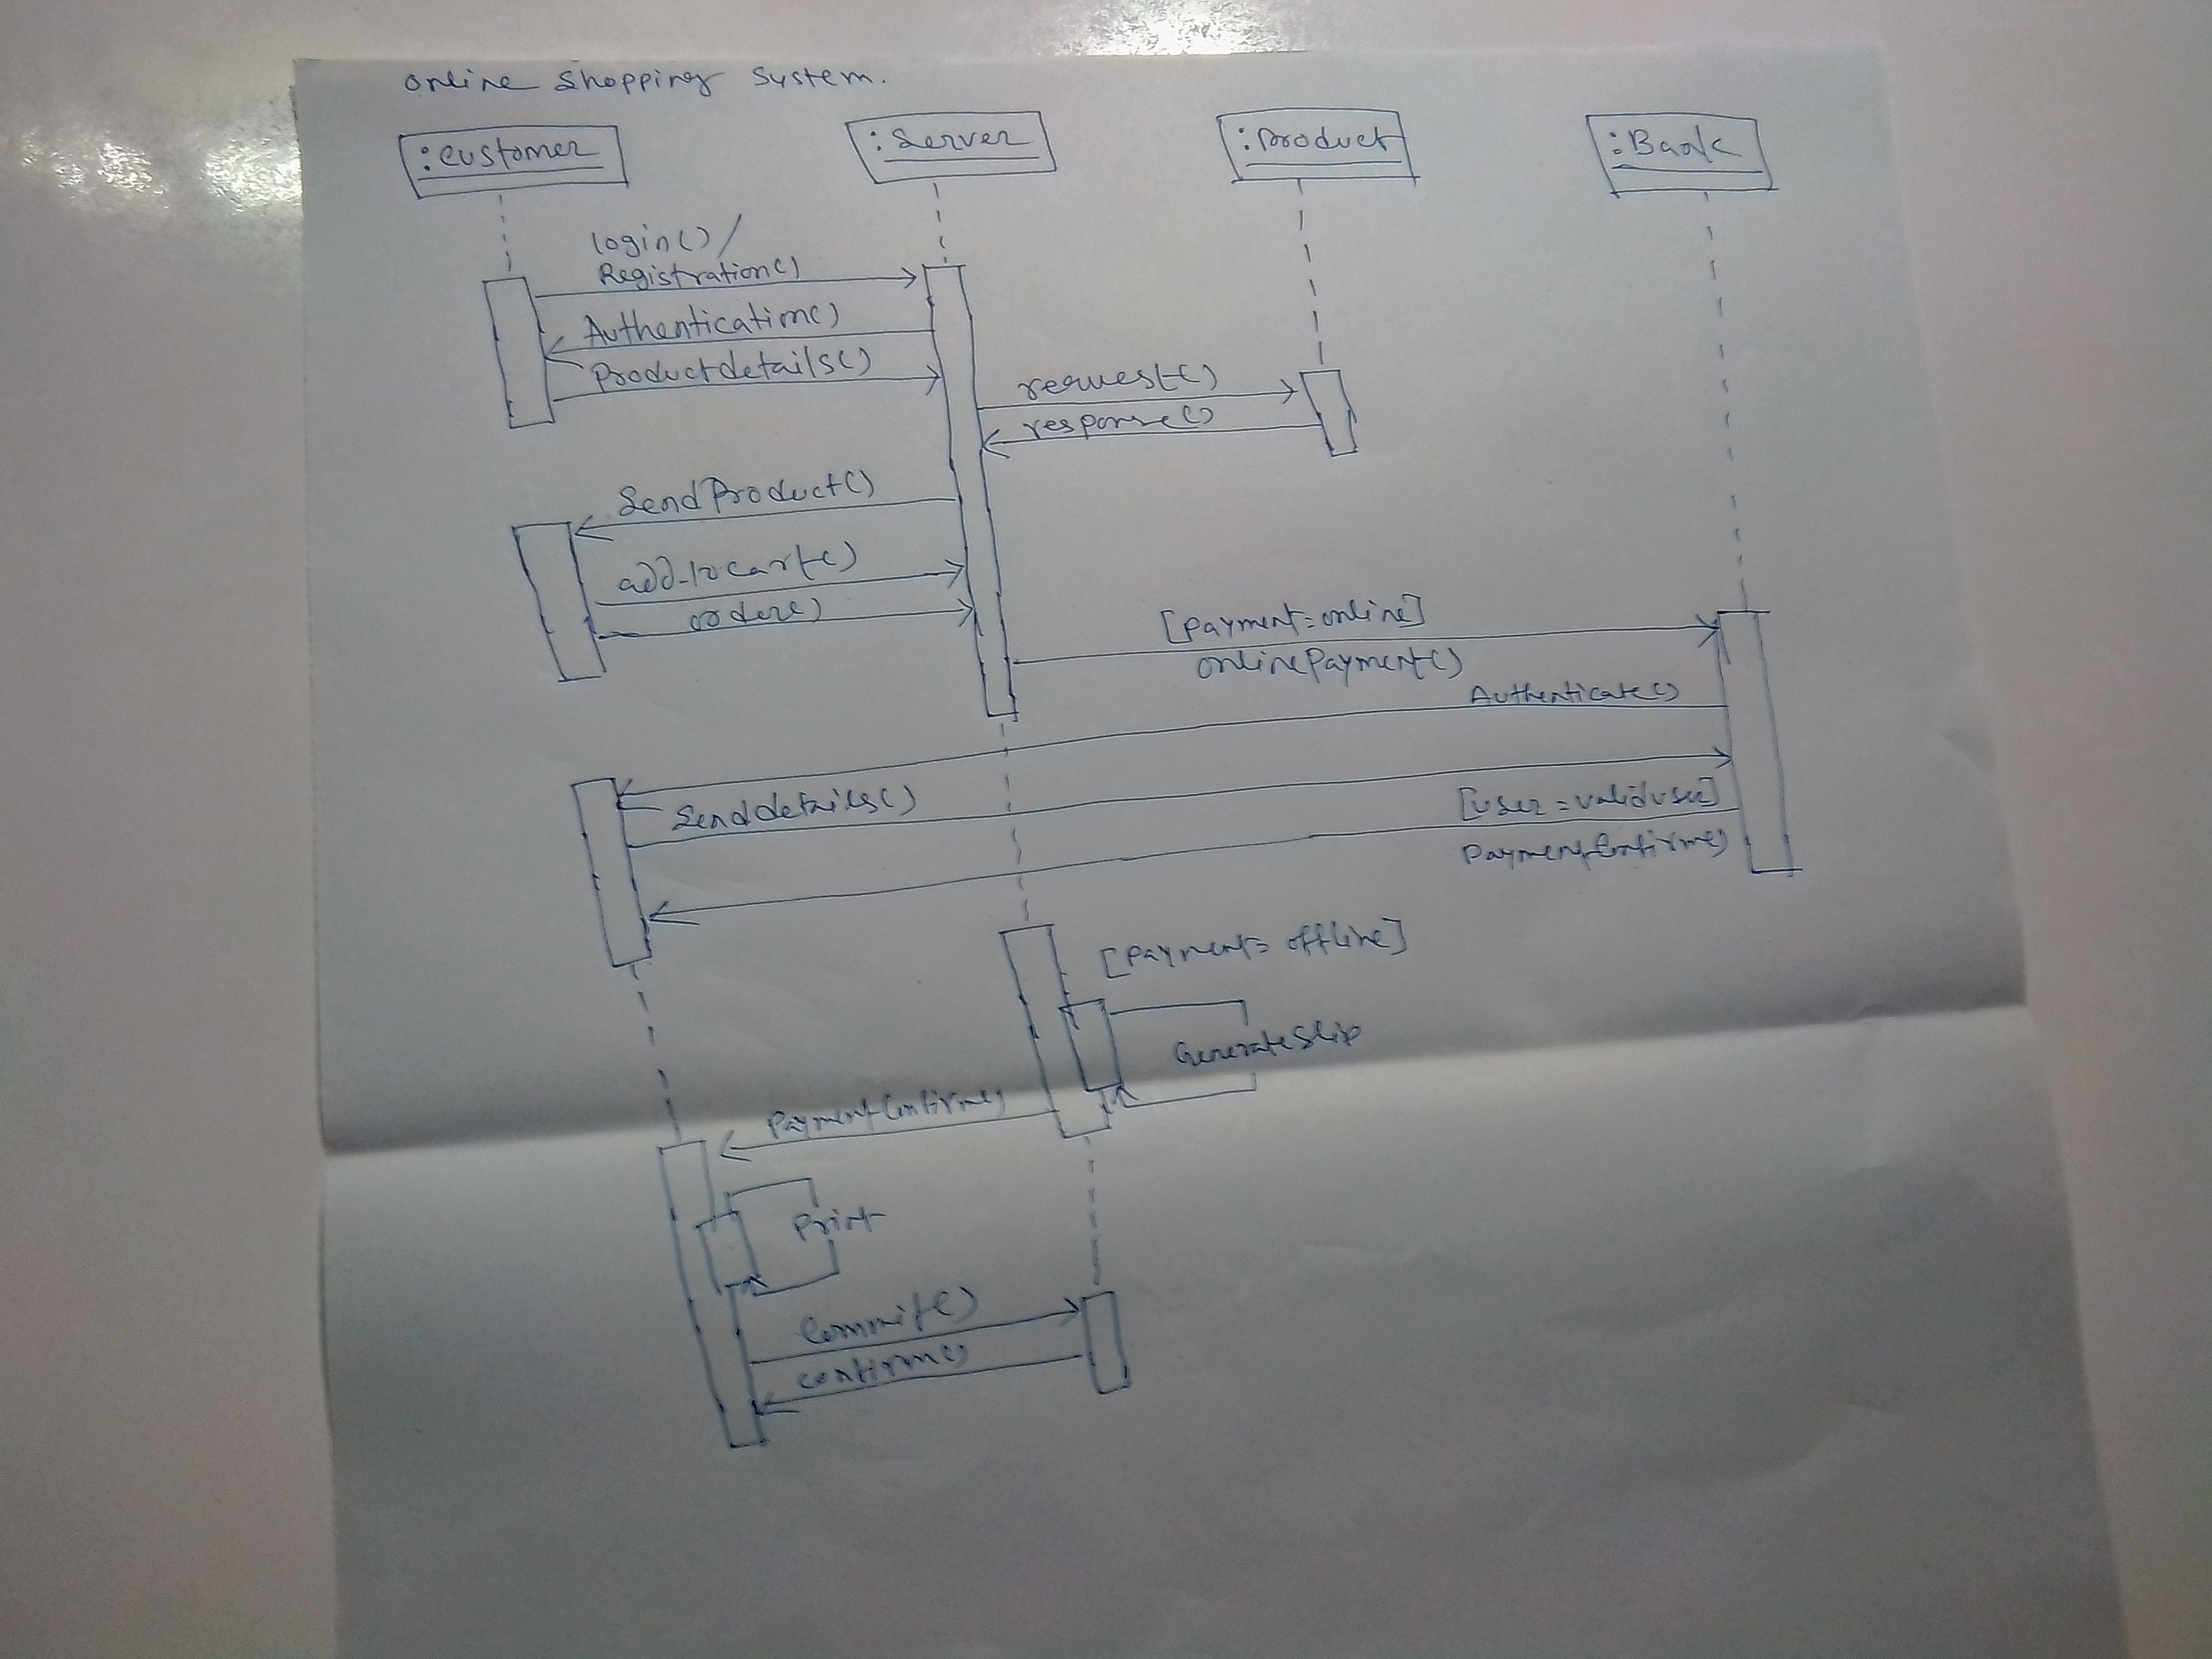 Online Shopping System.
:Customer
:Server
:Product
:Bank
login()/
Registration()
Authentication()
Productdetails()
request()
response()
SendProduct()
add-to-cart()
order()
[payment=online]
onlinePayment()
Authenticate()
Senddetails()
[user=validuser]
PaymentConfirm()
[payment= offline]
GenerateSlip
PaymentConfirm()
Print
Commit()
confirm()